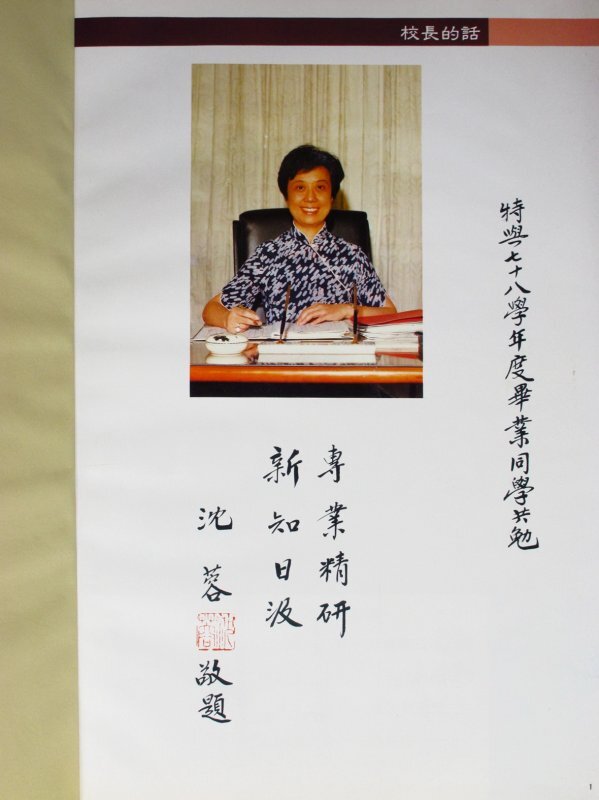 校長的話
特與七十八學年度畢業同學共勉
專業精研
新知日汲
沈蓉
敬題
1